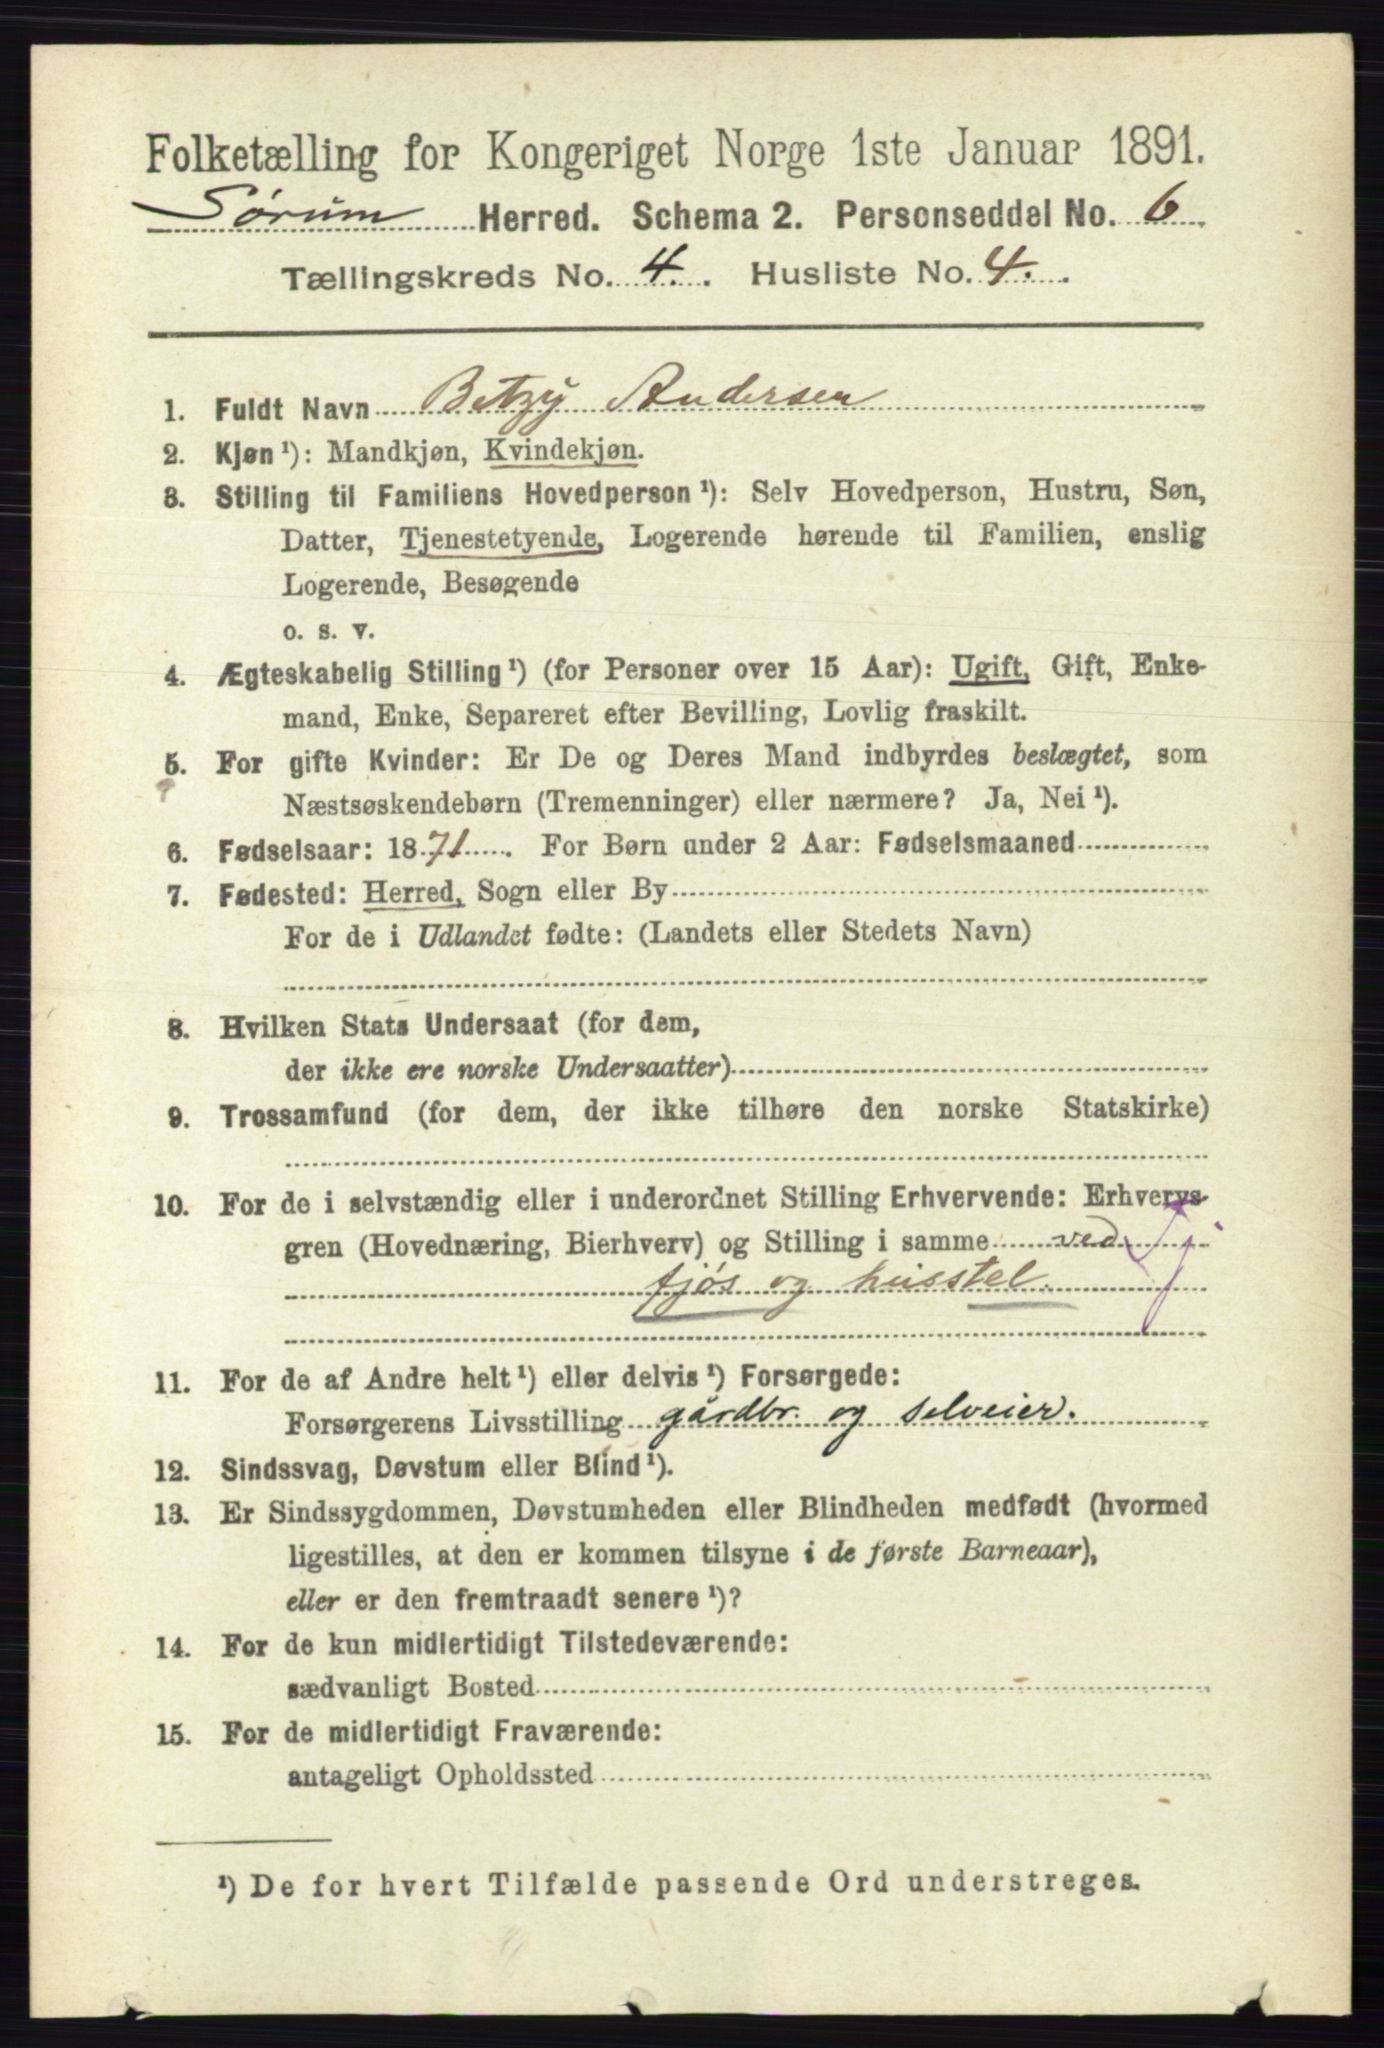 Folketælling for Kongeriget Norge 1ste Januar 1891.
Sørum Herred. Schema 2. Personseddel No. 6
Tællingskreds No. 4. Husliste No. 4.
1. Fuldt Navn Betzy Andersen
2. Kjøn ¹): Mandkjøn, Kvindekjøn.
3. Stilling til Familiens Hovedperson ¹): Selv Hovedperson, Hustru, Søn,
Datter, Tjenestetyende, Logerende hørende til Familien, enslig
Logerende, Besøgende
o. s. v.
4. Ægteskabelig Stilling ¹) (for Personer over 15 Aar): Ugift, Gift, Enke-
mand, Enke, Separeret efter Bevilling, Lovlig fraskilt.
5. For gifte Kvinder: Er De og Deres Mand indbyrdes beslægtet, som
Næstsøskendebørn (Tremenninger) eller nærmere? Ja, Nei ¹).
6. Fødselsaar: 1871. For Børn under 2 Aar: Fødselsmaaned
7. Fødested: Herred, Sogn eller By
For de i Udlandet fødte: (Landets eller Stedets Navn)
8. Hvilken Stats Undersaat (for dem,
der ikke ere norske Undersaatter)
9. Trossamfund (for dem, der ikke tilhøre den norske Statskirke)
10. For de i selvstændig eller i underordnet Stilling Erhvervende: Erhvervs-
gren (Hovednæring, Bierhverv) og Stilling i samme ved
fjøs og husstel.
11. For de af Andre helt ¹) eller delvis ¹) Forsørgede:
Forsørgerens Livsstilling gårdbr. og selveier.
12. Sindssvag, Døvstum eller Blind ¹).
13. Er Sindssygdommen, Døvstumheden eller Blindheden medfødt (hvormed
ligestilles, at den er kommen tilsyne i de første Barneaar),
eller er den fremtraadt senere ¹)?
14. For de kun midlertidigt Tilstedeværende:
sædvanligt Bosted
15. For de midlertidigt Fraværende:
antageligt Opholdssted
¹) De for hvert Tilfælde passende Ord understreges.